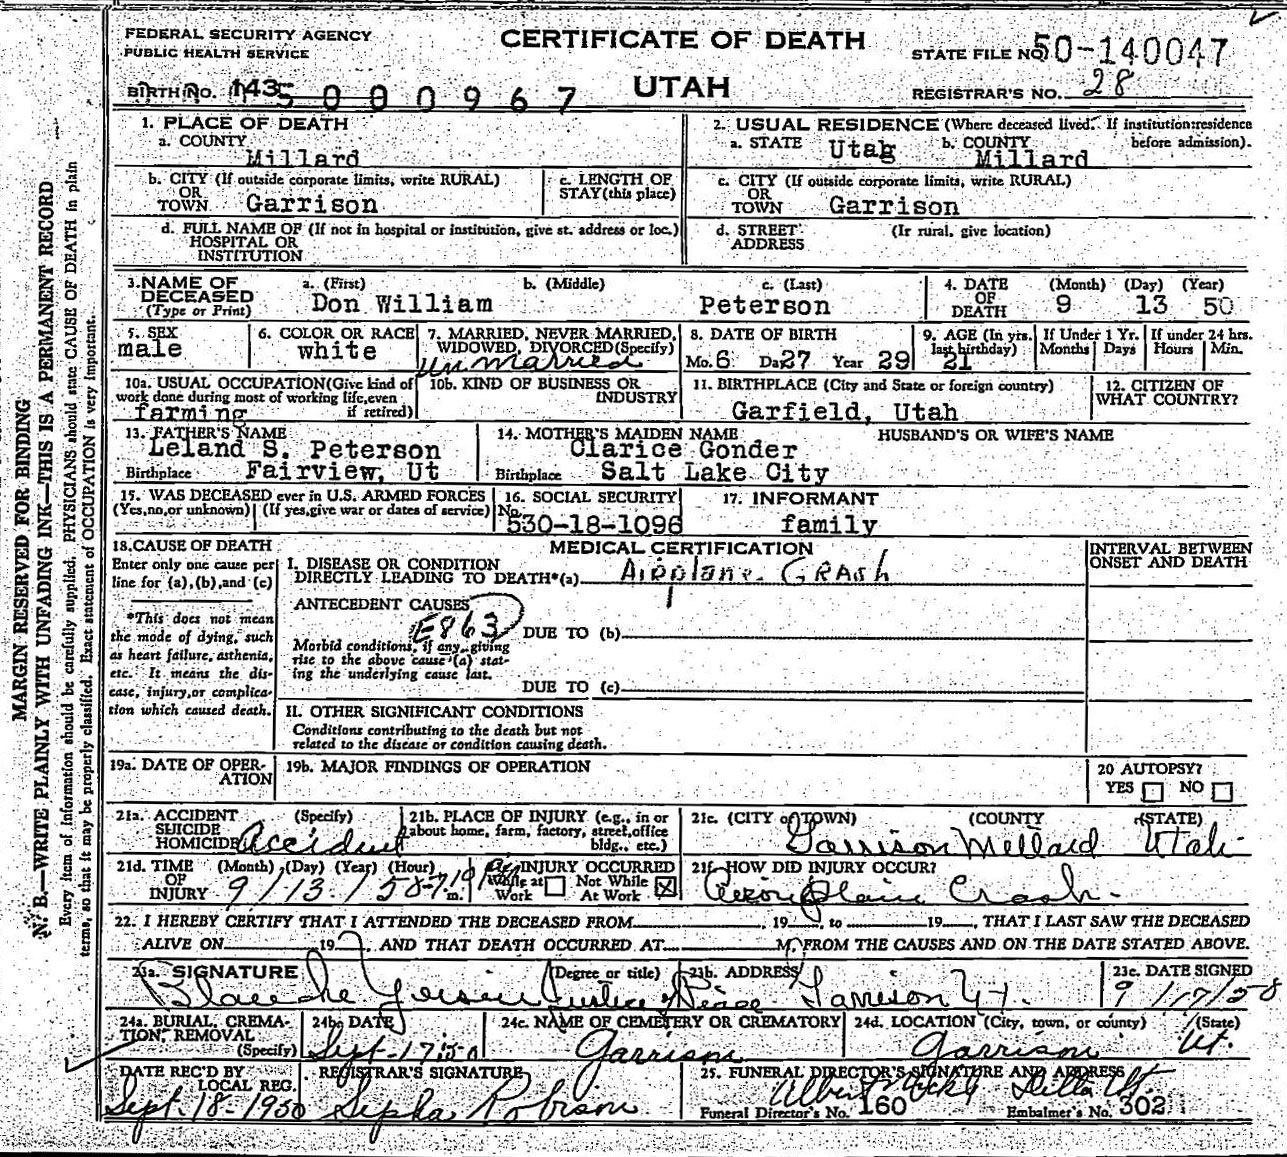 FEDERAL SECURITY AGENCY
PUBLIC HEALTH SERVICE
CERTIFICATE OF DEATH
UTAH
STATE FILE NO. 50-140047
BIRTH NO. 143 5000967
REGISTRAR'S NO. 28
1. PLACE OF DEATH
a. COUNTY
Millard
2. USUAL RESIDENCE (Where deceased lived. If institution:residence before admission).
a. STATE Utag b. COUNTY Millard
b. CITY (If outside corporate limits, write RURAL)
OR
TOWN Garrison
c. LENGTH OF
STAY (this place)
c. CITY (If outside corporate limits, write RURAL)
OR
TOWN Garrison
d. FULL NAME OF (If not in hospital or institution, give st. address or loc.)
HOSPITAL OR
INSTITUTION
d. STREET (Ir rural, give location)
ADDRESS
3. NAME OF
DECEASED
(Type or Print)
a. (First) b. (Middle) c. (Last)
Don William Peterson
4. DATE
OF
DEATH
(Month) (Day) (Year)
9 13 50
5. SEX
male
6. COLOR OR RACE
white
7. MARRIED, NEVER MARRIED,
WIDOWED, DIVORCED(Specify)
unmarried
8. DATE OF BIRTH
Mo. 6 Da 27 Year 29
9. AGE (In yrs.
last birthday)
21
If Under 1 Yr.
Months Days
If under 24 hrs.
Hours Min.
10a. USUAL OCCUPATION(Give kind of
work done during most of working life,even
if retired)
farming
10b. KIND OF BUSINESS OR
INDUSTRY
11. BIRTHPLACE (City and State or foreign country)
Garfield, Utah
12. CITIZEN OF
WHAT COUNTRY?
13. FATHER'S NAME
Leland S. Peterson
Birthplace Fairview, Ut
14. MOTHER'S MAIDEN NAME
Clarice Gonder
Birthplace Salt Lake City
HUSBAND'S OR WIFE'S NAME
15. WAS DECEASED ever in U.S. ARMED FORCES
(Yes,no,or unknown) (If yes,give war or dates of service)
16. SOCIAL SECURITY
No.
530-18-1096
17. INFORMANT
family
18. CAUSE OF DEATH
Enter only one cause per
line for (a),(b),and (c)
*This does not mean
the mode of dying, such
as heart failure, asthenia,
etc. It means the dis-
ease, injury,or complica-
tion which caused death.
MEDICAL CERTIFICATION
I. DISEASE OR CONDITION
DIRECTLY LEADING TO DEATH*(a) Airplane Crash
ANTECEDENT CAUSES
E863
DUE TO (b)
Morbid conditions, if any, giving
rise to the above cause (a) stat-
ing the underlying cause last.
DUE TO (c)
II. OTHER SIGNIFICANT CONDITIONS
Conditions contributing to the death but not
related to the disease or condition causing death.
INTERVAL BETWEEN
ONSET AND DEATH
19a. DATE OF OPER-
ATION
19b. MAJOR FINDINGS OF OPERATION
20 AUTOPSY?
YES NO
21a. ACCIDENT (Specify)
SUICIDE
HOMICIDE Accident
21b. PLACE OF INJURY (e.g., in or
about home, farm, factory, street,office
bldg., etc.)
21c. (CITY or TOWN) (COUNTY (STATE)
Garrison Mellard Utah
21d. TIME (Month) (Day) (Year) (Hour)
OF
INJURY 9/13/50
m.
INJURY OCCURRED
While at Work
Not While At Work
21f. HOW DID INJURY OCCUR?
Aeroplaine Crash.
22. I HEREBY CERTIFY THAT I ATTENDED THE DECEASED FROM , 19 , to 19 , THAT I LAST SAW THE DECEASED
ALIVE ON 19 , AND THAT DEATH OCCURRED AT M, FROM THE CAUSES AND ON THE DATE STATED ABOVE.
23a. SIGNATURE (Degree or title)
Blanche Justice Peace
23b. ADDRESS
Garrison Ut.
23c. DATE SIGNED
9/17/50
24a. BURIAL, CREMA-
TION, REMOVAL
(Specify)
24b. DATE
Sept-17-50
24c. NAME OF CEMETERY OR CREMATORY
Garrison
24d. LOCATION (City, town, or county) (State)
Garrison Ut.
DATE REC'D BY
LOCAL REG.
Sept. 18-1950
REGISTRAR'S SIGNATURE
Sepha Robison
25. FUNERAL DIRECTOR'S SIGNATURE AND ADDRESS
Albert Delta Ut.
Funeral Director's No. 160 Embalmer's No. 302
MARGIN RESERVED FOR BINDING
N. B.—WRITE PLAINLY WITH UNFADING INK—THIS IS A PERMANENT RECORD
Every item of information should be carefully supplied. PHYSICIANS should state CAUSE OF DEATH in plain
terms, so that it may be properly classified. Exact statement of OCCUPATION is very important.